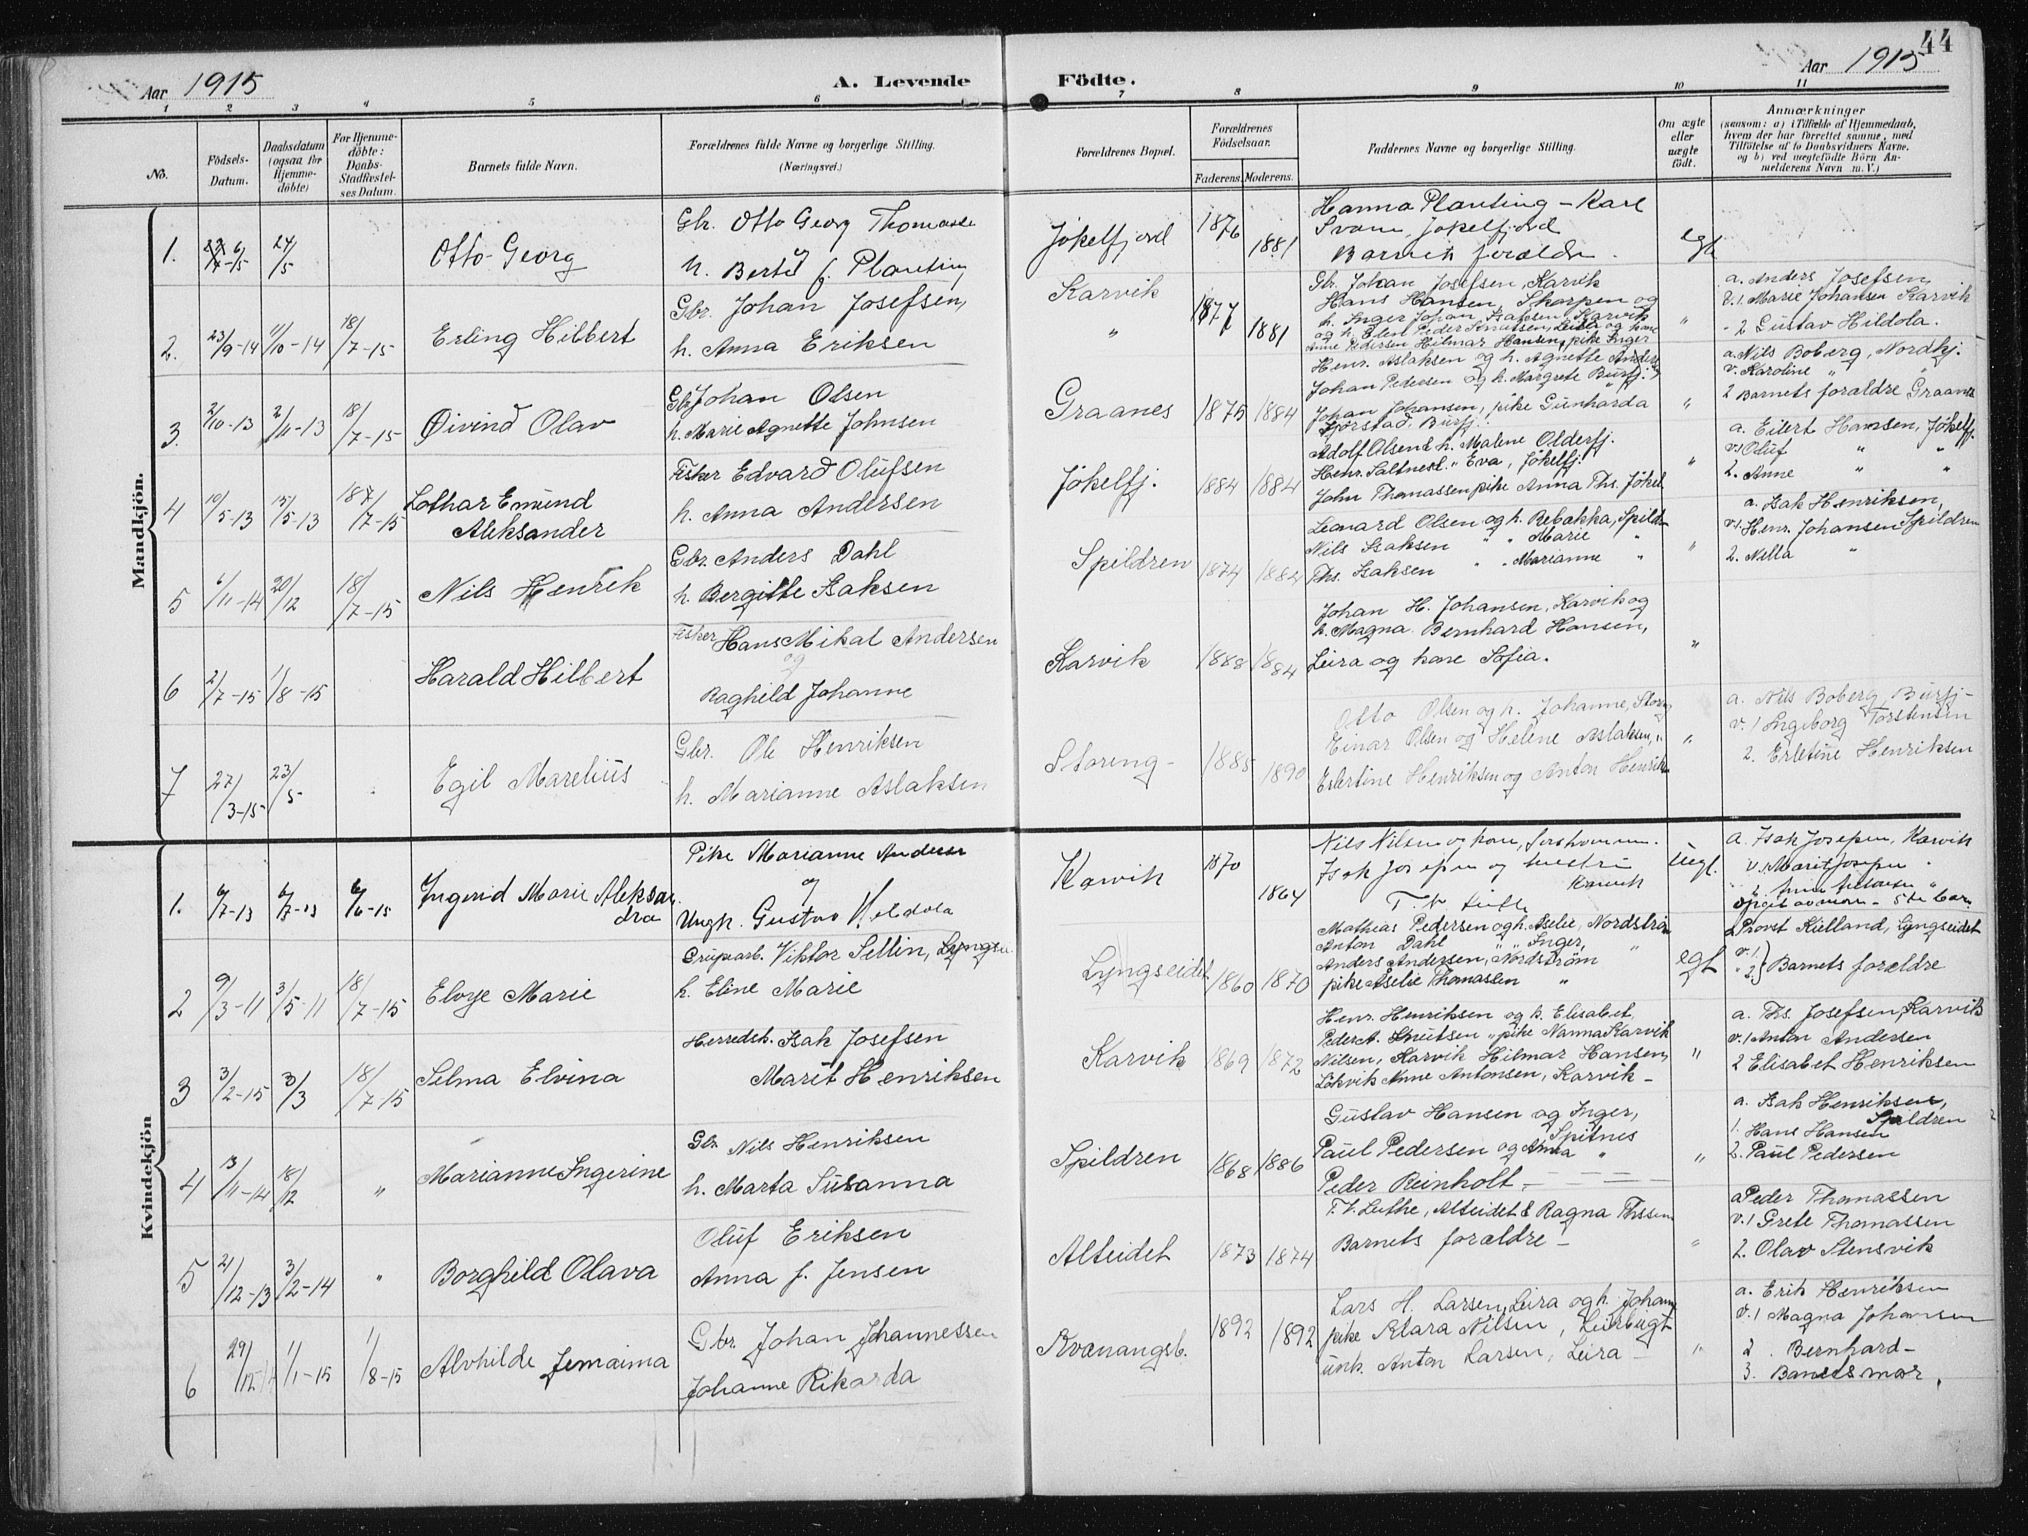 Aar 1915
A. Levende
Födte.
Aar 1915
44
1 2 3 4 5 6 7 8 9 10 11
No.
Födsels-
Datum.
Daabsdatum
(ogsaa for
Hjemme-
döbte)
For Hjemme-
döbte:
Daabs-
Stadfæstel-
ses Datum.
Barnets fulde Navn.
Forældrenes fulde Navne og borgerlige Stilling.
(Næringsvei.)
Forældrenes Bopæl.
Forældrenes
Födselsaar.
Faderens. Moderens.
Faddernes Navne og borgerlige Stilling.
Om ægte
eller
uægte
födt.
Anmærkninger
(saasom: a) i Tilfælde af Hjemmedaab,
hvem der har forrettet samme, med
Tilföielse af to Daabsvidners Navne,
og b) ved uægtefödte Börn An-
melderens Navn m. V.)
Mandkjön.
1. 24/5 Otto Georg
Gbr. Otto Georg Thomasse
og
h. Berte f. Planting
Jøkelfjord 1876 1881
Hanna Planting - Karl
Svane, Jøkelfjord
Barnets forældre.
egte
2. 23/9-14 11/10-14 18/7-15 Erling Hilbert
Gbr. Johan Josefsen,
h. Anna Eriksen
Karvik
" 1877 1881
Gbr. Johan Josefsen, Karvik
Hans Hansen, Skorpen og
h. Inger Johan Isaksen, Karvik
og h. Elen Peder Knutsen, Leira og kone
Anne Pedersen Hilmar Hansen, pike Inger
"
a. Anders Josefsen,
v. 1. Marie Johansen Karvik
- 2 Gustav Hildola.
3. 2/10-13 2/11-13 18/7-15 Øivind Olav
Gbr Johan Olsen
h. Marie Agnette Johnsen
Graanes 1875 1884
Henr. Aslaksen og h. Agnette Anders
Johan Pedersen og h. Margrete Burfj.
Johan Johansen, pike Gunharda
Kjørstad, Burfj.
"
a. Nils Boberg, Nordkj.
v. Karoline " "
2 Barnets forældre Graanes
4 10/5-13 15/5-13 18/7-15 Lothar Emund
Aleksander
Fisker Edvard Olufsen
h. Anna Andersen
Jøkelfj. 1884 1884
Adolf Olsen & h. Malene Olderfj.
Henr. Saltnes & " Eva, Jøkelfj.
John Thomassen pike Anna Ths. Jøkel
"
a. Eilert Hansen, Jøkelfj.
v. 1 Oluf " "
2. Anne " "
5 6/11-14 20/12 18/7-15 Nils Henrik
Gbr. Anders Dahl
h. Bergitte Isaksen
Spildren 1874 1884
Leonard Olsen og h. Rebakka, Spildr
Nils Isaksen " " Marie "
Ths. Isaksen " " Marianne "
"
a. Isak Henriksen,
v 1. Henr. Johansen Spildren
2. Nella "
6 2/7-15 1/8-15 Harald Hilbert
Fisker Hans Mikal Andersen
og
Raghild Johanne
Karvik 1888 1884
Johan H. Johansen, Karvik og
h. Magna. Bernhard Hansen,
Leira og kone Sofia.
"
7 27/3-15 23/5 Egil Marelius
Gbr. Ole Henriksen
h. Marianne Aslaksen
Storeng - 1885 1890
Otto Olsen og h. Johanne, Storeng
Einar Olsen og Helene Aslaksen, "
Erlertine Henriksen og Anton Henrik
"
a. Nils Boberg Burfj -
v. 1 Ingeborg Torstensen
2. Erletine Henriksen
Kvindekjön
1. 6/7-13 6/7-13 Ingerid Marie Aleksan
dra
Pike Marianne Anderse
og
Ungk. Gustav Hildola
Karvik 1870 1864
Nils Nilsen og kone,
Isak Josepsen og hustru
Karvik
uegt.
a. Isak Josepsen, Karvik
v. 1. Marit Josepsen "
2 9/3-11 3/5-11 18/7-15 Elvye Marie
Grubearb. Viktor Sellin, Lyngse
h. Eline Marie
Lyngseidet 1860 1870
Mathias Pedersen og h. Aselie, Nordstrøm
Anton Dahl " " Inger, "
Anders Andersen, Nordstrøm
pike Aselie Thomassen "
egt
a Provst Kielland, Lyngseidet
v. 1
" 2 } Barnets forældre
3 3/2-15 3/3 18/7-15 Selma Elvina
Herredsk. Isak Josefsen
Marit Henriksen
Karvik 1869 1872
Henr. Henriksen og h. Elisabet,
Peder A. Knutsen, " pike Nanna Karvik
Nilsen, Karvik Hilmar Hansen,
Løkvik Anne Antonsen, Karvik -
"
a. Ths. Josefsen, Karvik
v. 1 Anton Andersen
2 Elisabet Henriksen
4 13/11-14 18/12 " Marianne Ingerine
Gbr. Nils Henriksen
h. Marta Susanna
Spildren 1868 1886
Gustav Hansen og Inger,
Spitnes
Paul Pedersen og Anna "
Peder Reinholt -
"
a. Isak Henriksen,
Spildren
1. Hans Hansen
2. Paul Pedersen
5 21/12-13 3/2-14 " Borghild Olava
Oluf Eriksen
Anna f. Jensen
Alteidet 1873 1874
T. V. Luthe, Alteidet & Ragna Thssen
Barnets forældre -
"
a Peder Thomassen
v. 1 Grete Thomassen
2. Olav Stensvik
6 29/12 1/1-15 1/8-15 Alvhilde Jemaima
Gbr. Johan Johannessen
Johanne Rikarda
Kvænangsb. 1892 1892
Lars H. Larsen, Leira og h. Johann
pike Klara Nilsen, Leirbugt
unk. Anton Larsen, Leira -
"
a. Erik Henriksen
v. 1 Magna Johansen
2 . Bernhard -
3. Barnets mor.